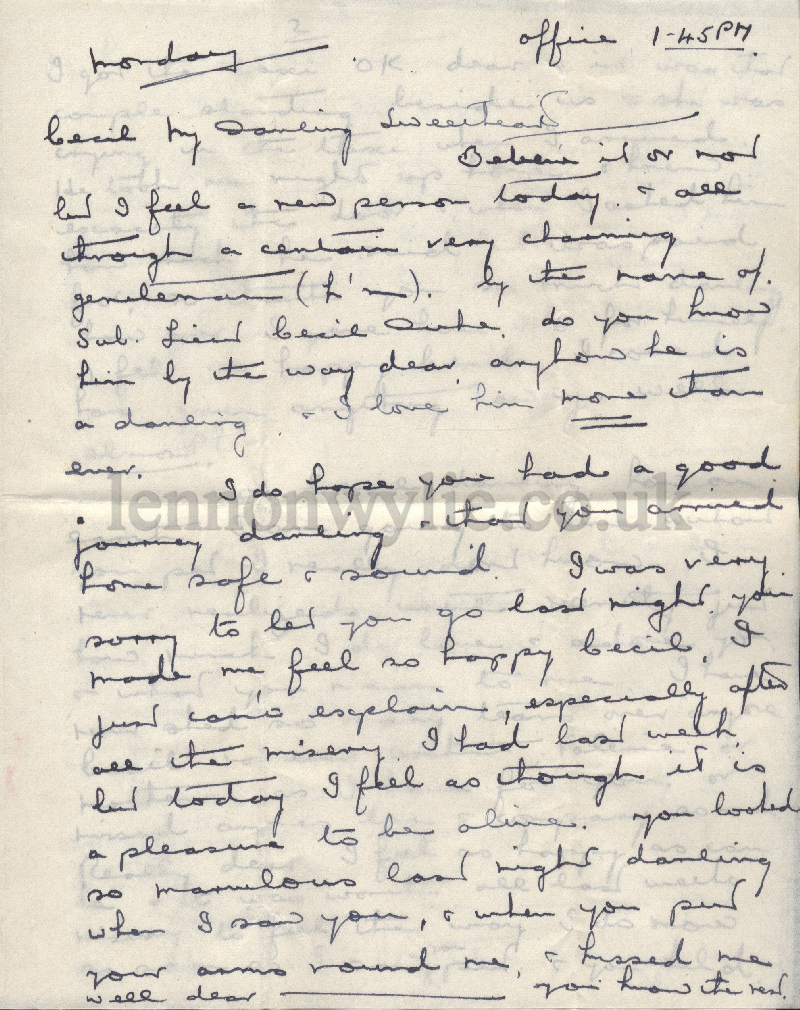 Monday
office 1-45PM.
Cecil My Darling Sweetheart
Believe it or not
but I feel a new person today. & all
through a certain very charming
gentleman (h'm). by the name of.
Sub. Lieut Cecil Duke. do you know
him by the way dear, anyhow he is
a darling & I love him more than
ever.
I do hope you had a good
journey darling & that you arrived
home safe & sound. I was very
sorry to let you go last night, you
made me feel so happy Cecil, I
just can't explain, especially after
all the misery I had last week,
but today I feel as though it is
a pleasure to be alive. you looked
so marvulous last night darling
when I saw you, & when you put
your arms round me, & kissed me
well dear you know the rest.
lennonwylie.co.uk